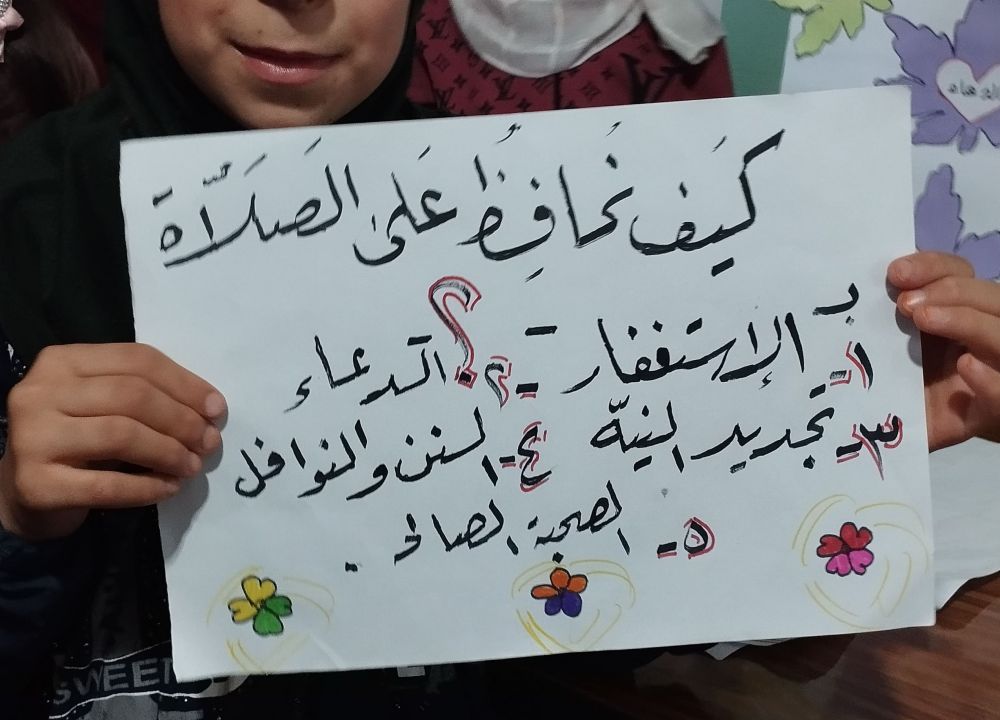 كَيَف نُحافِظُ عَلى الصَلَاّة
؟
بـ
١- الإستغفار - ٢- الدعاء
٣- تجديد النيّة ٤- السنن والنوافل
٥- الصحبة الصالح
SWEE